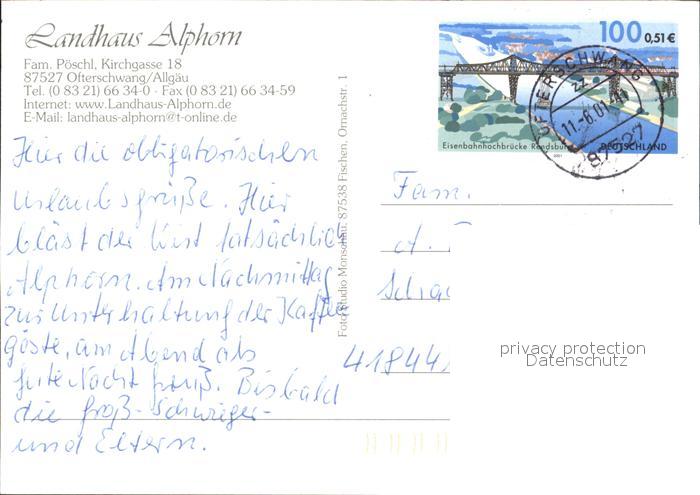 Landhaus Alphorn
Fam. Pöschl, Kirchgasse 18
87527 Ofterschwang/Allgäu
Tel. (0 83 21) 66 34-0 · Fax (0 83 21) 66 34-59
Internet: www.Landhaus-Alphorn.de
E-Mail: landhaus-alphorn@t-online.de
Hier die obligatorischen
Urlaubsgrüße. Hier
bläst der Wirt tatsächlich
Alphorn. Am Nachmittag
zur Unterhaltung der Kaffee
gäste, am Abend als
Gute Nacht Gruß. Bis bald
die Groß-, Schwieger-
und Eltern.
Foto Studio Monschau, 87538 Fischen, Ornachstr. 1
100 0,51 €
Eisenbahnhochbrücke Rendsburg
2001
DEUTSCHLAND
OFTERSCHWANG
11.-6.01
87527
Fam.
A.
418441
privacy protection
Datenschutz